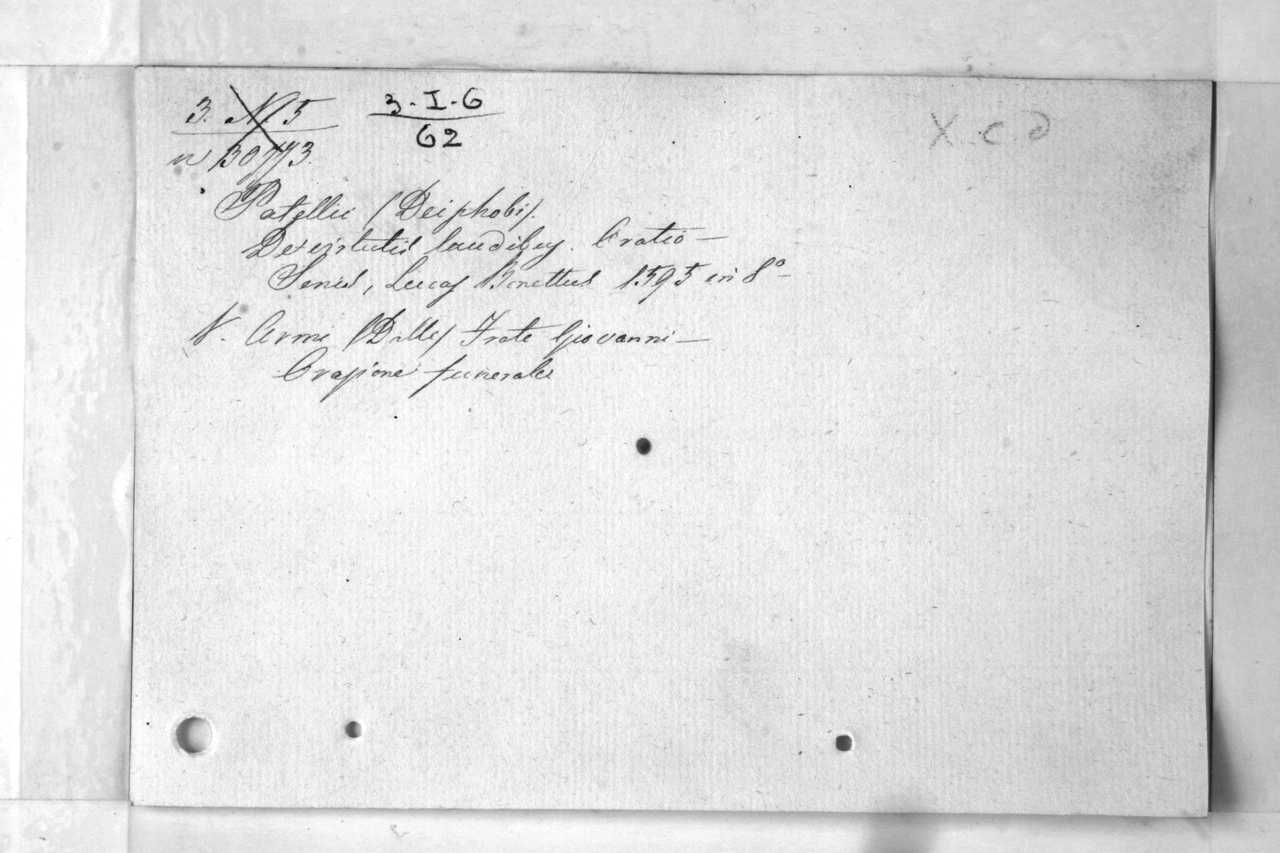 3. N 5
3-I-6
62
X.c.d
Patellii (Deiphobi).
De virtutis laudibus. Oratio —
Senis, Lucas Bonettus 1595 in 8º
V. Armi (Dalle) Frate Giovanni —
Orazione funerale